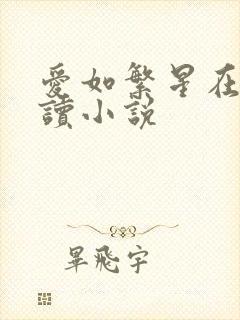 愛如繁星在
讀小說
畢飛宇